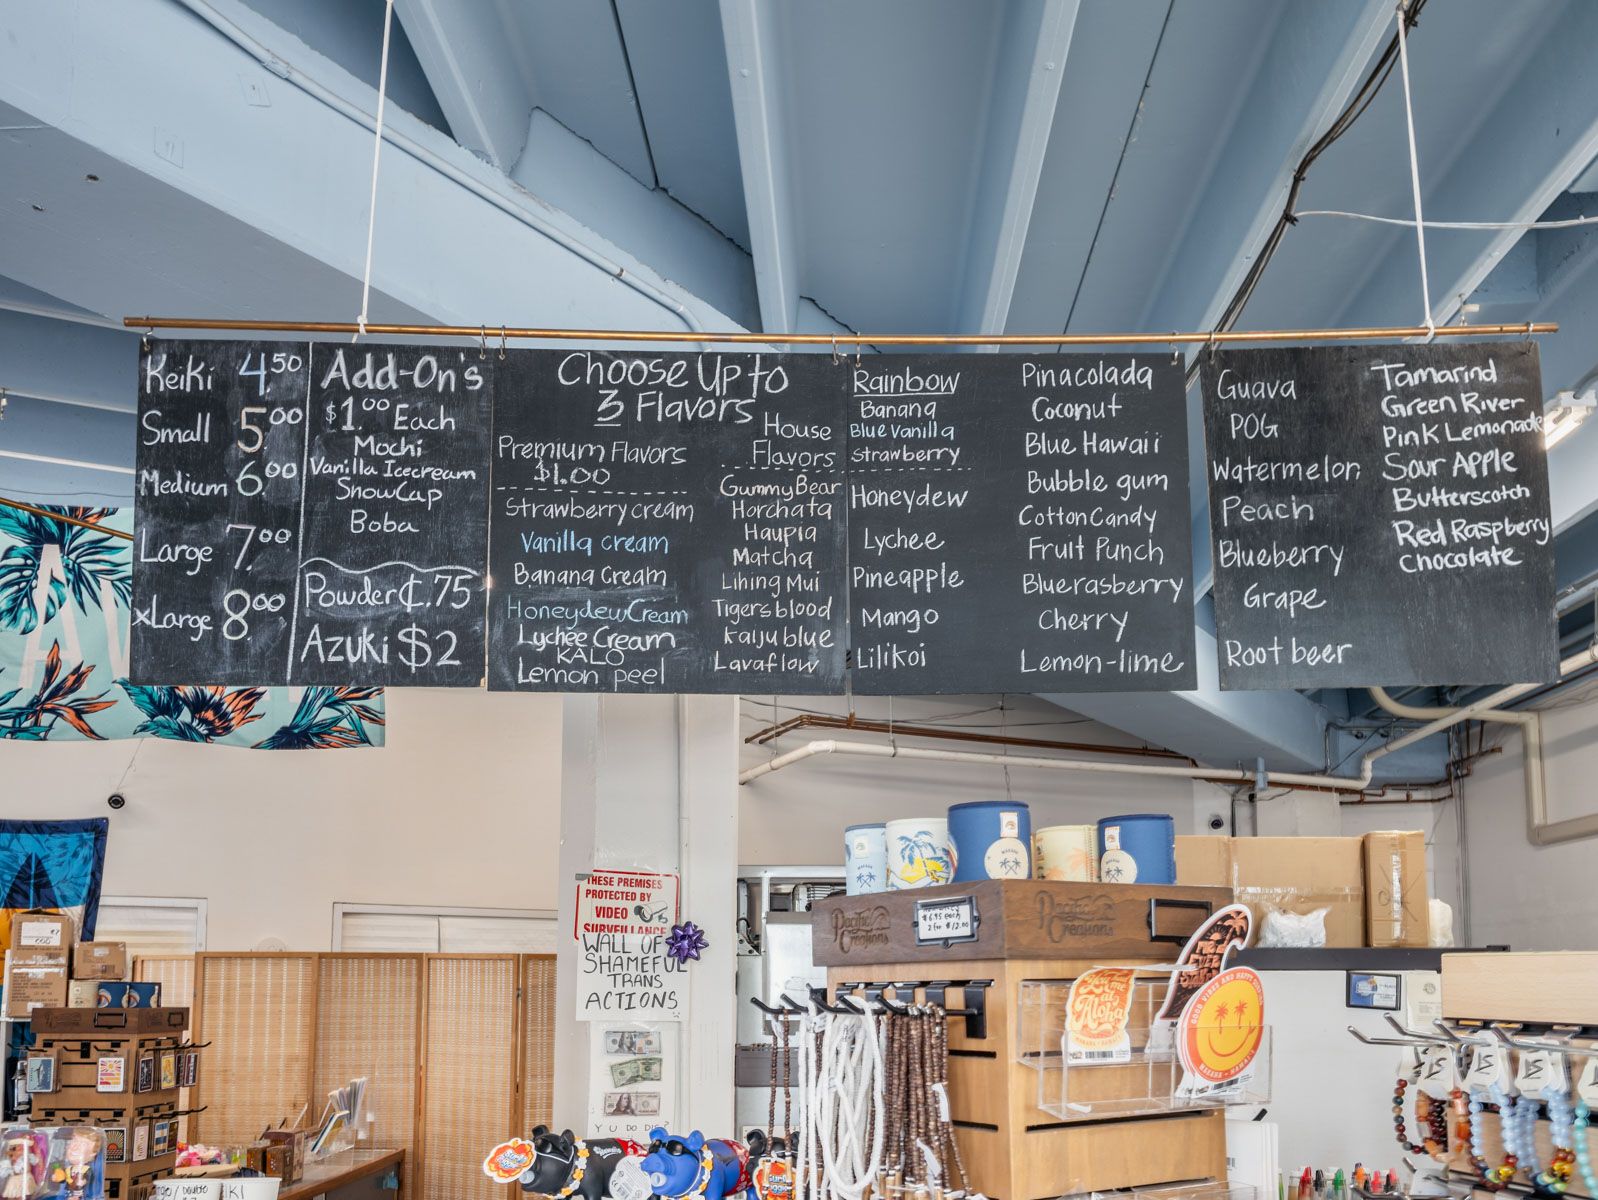 Keiki 4.50
Small 5.00
Medium 6.00
Large 7.00
xLarge 8.00
Add-On's
$1.00 Each
Mochi
Vanilla Icecream
SnowCap
Boba
Powder ¢.75
Azuki $2
Choose Up to
3 Flavors
Premium Flavors
$1.00
Strawberry cream
Vanilla cream
Banana Cream
Honeydew Cream
Lychee Cream
KALO
Lemon peel
House
Flavors
Gummy Bear
Horchata
Haupia
Matcha
Lihing Mui
Tigers blood
Kaiju blue
Lavaflow
Rainbow
Banana
Blue Vanilla
Strawberry
Honeydew
Lychee
Pineapple
Mango
Lilikoi
Pinacolada
Coconut
Blue Hawaii
Bubble gum
Cotton Candy
Fruit Punch
Bluerasberry
Cherry
Lemon-lime
Guava
POG
Watermelon
Peach
Blueberry
Grape
Root beer
Tamarind
Green River
Pink Lemonade
Sour Apple
Butterscotch
Red Raspberry
Chocolate
THESE PREMISES
PROTECTED BY
VIDEO
SURVEILLANCE
WALL OF
SHAMEFUL
TRANS
ACTIONS
Y U DO DIS?
Pacific
Creations
$6.95 each
2 for $12.00
Pacific
Creations
You Had
me at
Aloha
GOOD VIBES AND HAPPY